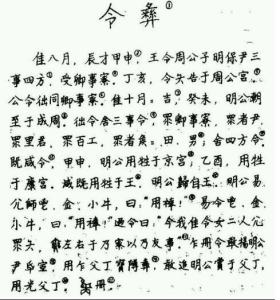 令彝①
隹八月，辰才甲申，王令周公子明保尹三
事四方，受卿事寮。丁亥，令夨告于周公宫。
公令𢓊同卿事寮。隹十月=吉，癸未，明公朝
至于成周，𢓊令舍三事令，眔卿事寮，眔者尹，
眔里君，眔百工，眔者侯=田、男，舍四方令。
既咸令，甲申，明公用牲于京宫；乙酉，用牲
于康宫，咸既用牲于王。明公歸自王。明公易
亢師鬯、金、小牛，曰：“用𥛱”；易令鬯、金、
小牛，曰：“用𥛱”。迺令曰：“今我隹令女二人亢
眔夨，奭左右于乃寮以乃友事。”乍册令敢揚明公
尹氒宦，用乍父丁寶𬯚彝，敢追明公賞于父丁，
用光父丁。册